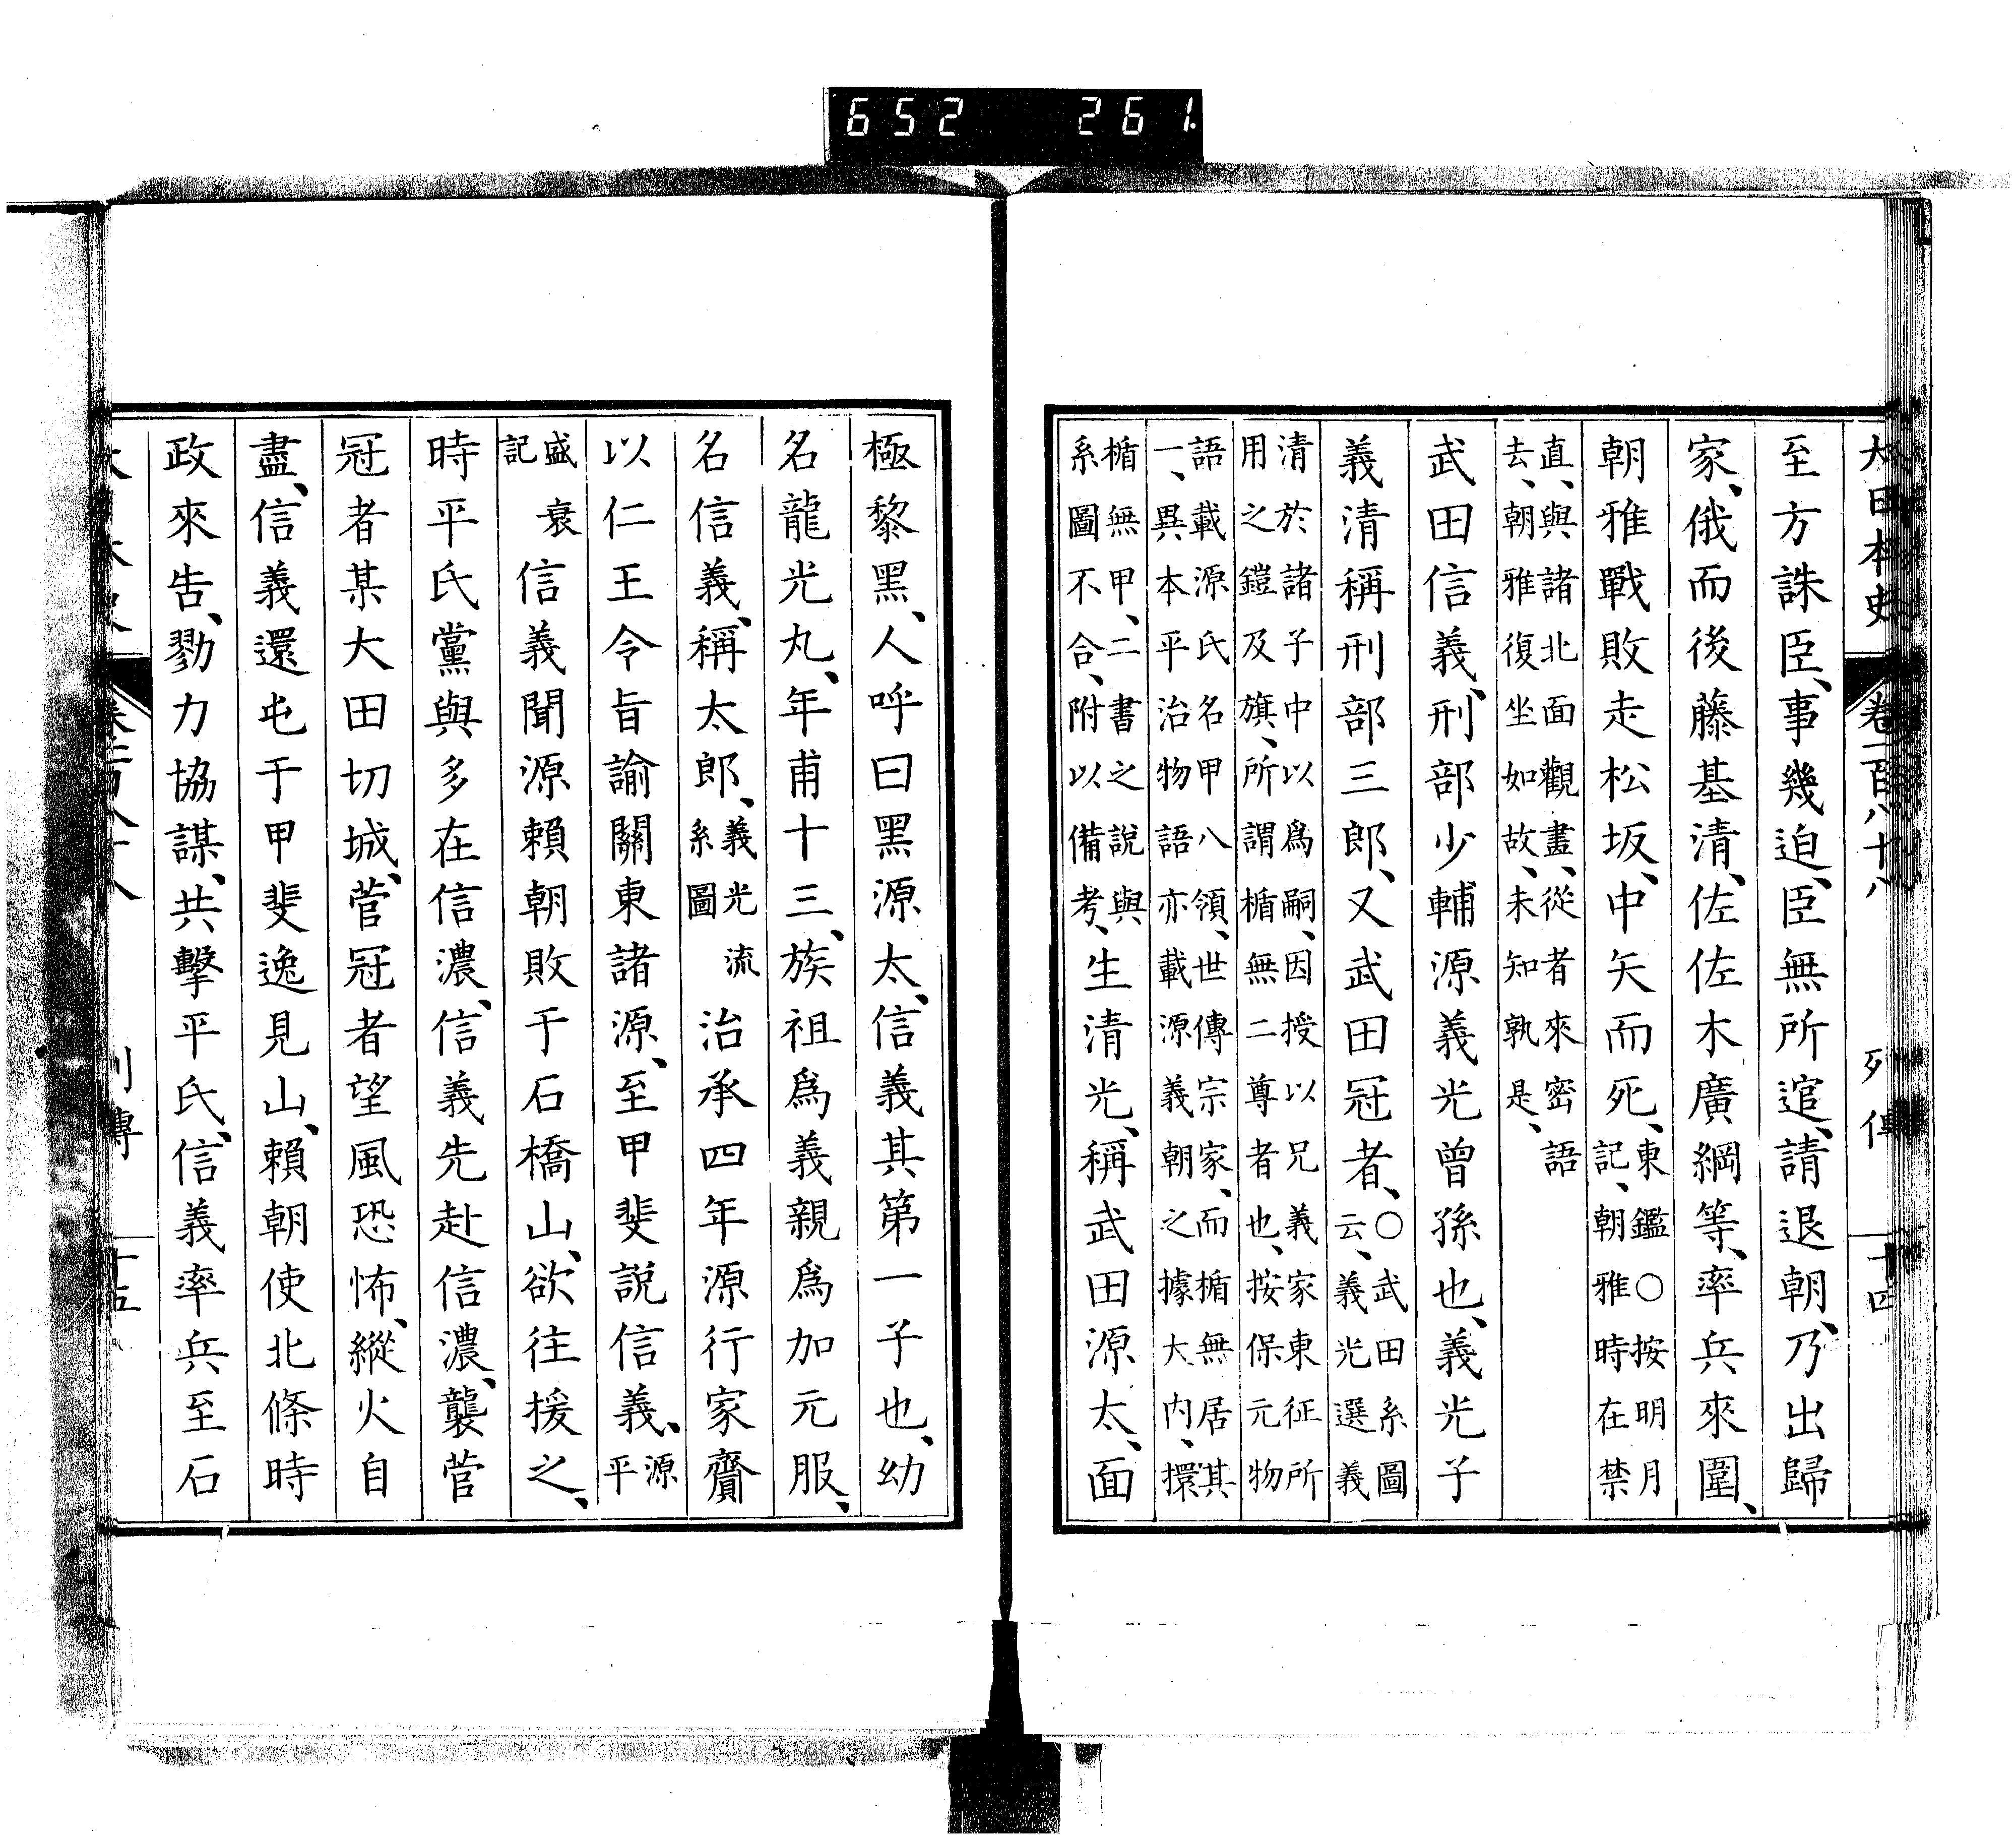 652 261
大日本史 卷一百八十八 列傳 十四
至方誅臣、事幾迫、臣無所逭、請退朝、乃出歸
家、俄而後藤基清、佐佐木廣綱等、率兵來圍、
朝雅戰敗走松坂、中矢而死、東鑑〇按明月記、朝雅時在禁
直、與諸北面觀畫、從者來密語去、朝雅復坐如故、未知孰是、
武田信義、刑部少輔源義光曾孫也、義光子
義清稱刑部三郎、又武田冠者、〇武田系圖云、義光選義
清於諸子中以爲嗣、因授以兄義家東征所用之鎧及旗、所謂楯無二尊者也、按保元物
語載源氏名甲八領、世傳宗家、而楯無居其一、異本平治物語亦載源義朝之據大内、擐
楯無甲、二書之說與系圖不合、附以備考、生清光、稱武田源太、面
極黎黑、人呼曰黑源太、信義其第一子也、幼
名龍光丸、年甫十三、族祖爲義親爲加元服、
名信義、稱太郎、義光流系圖治承四年源行家齎
以仁王令旨諭關東諸源、至甲斐說信義、源平
盛衰記信義聞源賴朝敗于石橋山、欲往援之、
時平氏黨與多在信濃、信義先赴信濃、襲菅
冠者某大田切城、菅冠者望風恐怖、縱火自
盡、信義還屯于甲斐逸見山、賴朝使北條時
政來告、勠力協謀、共擊平氏、信義率兵至石
列傳 十五